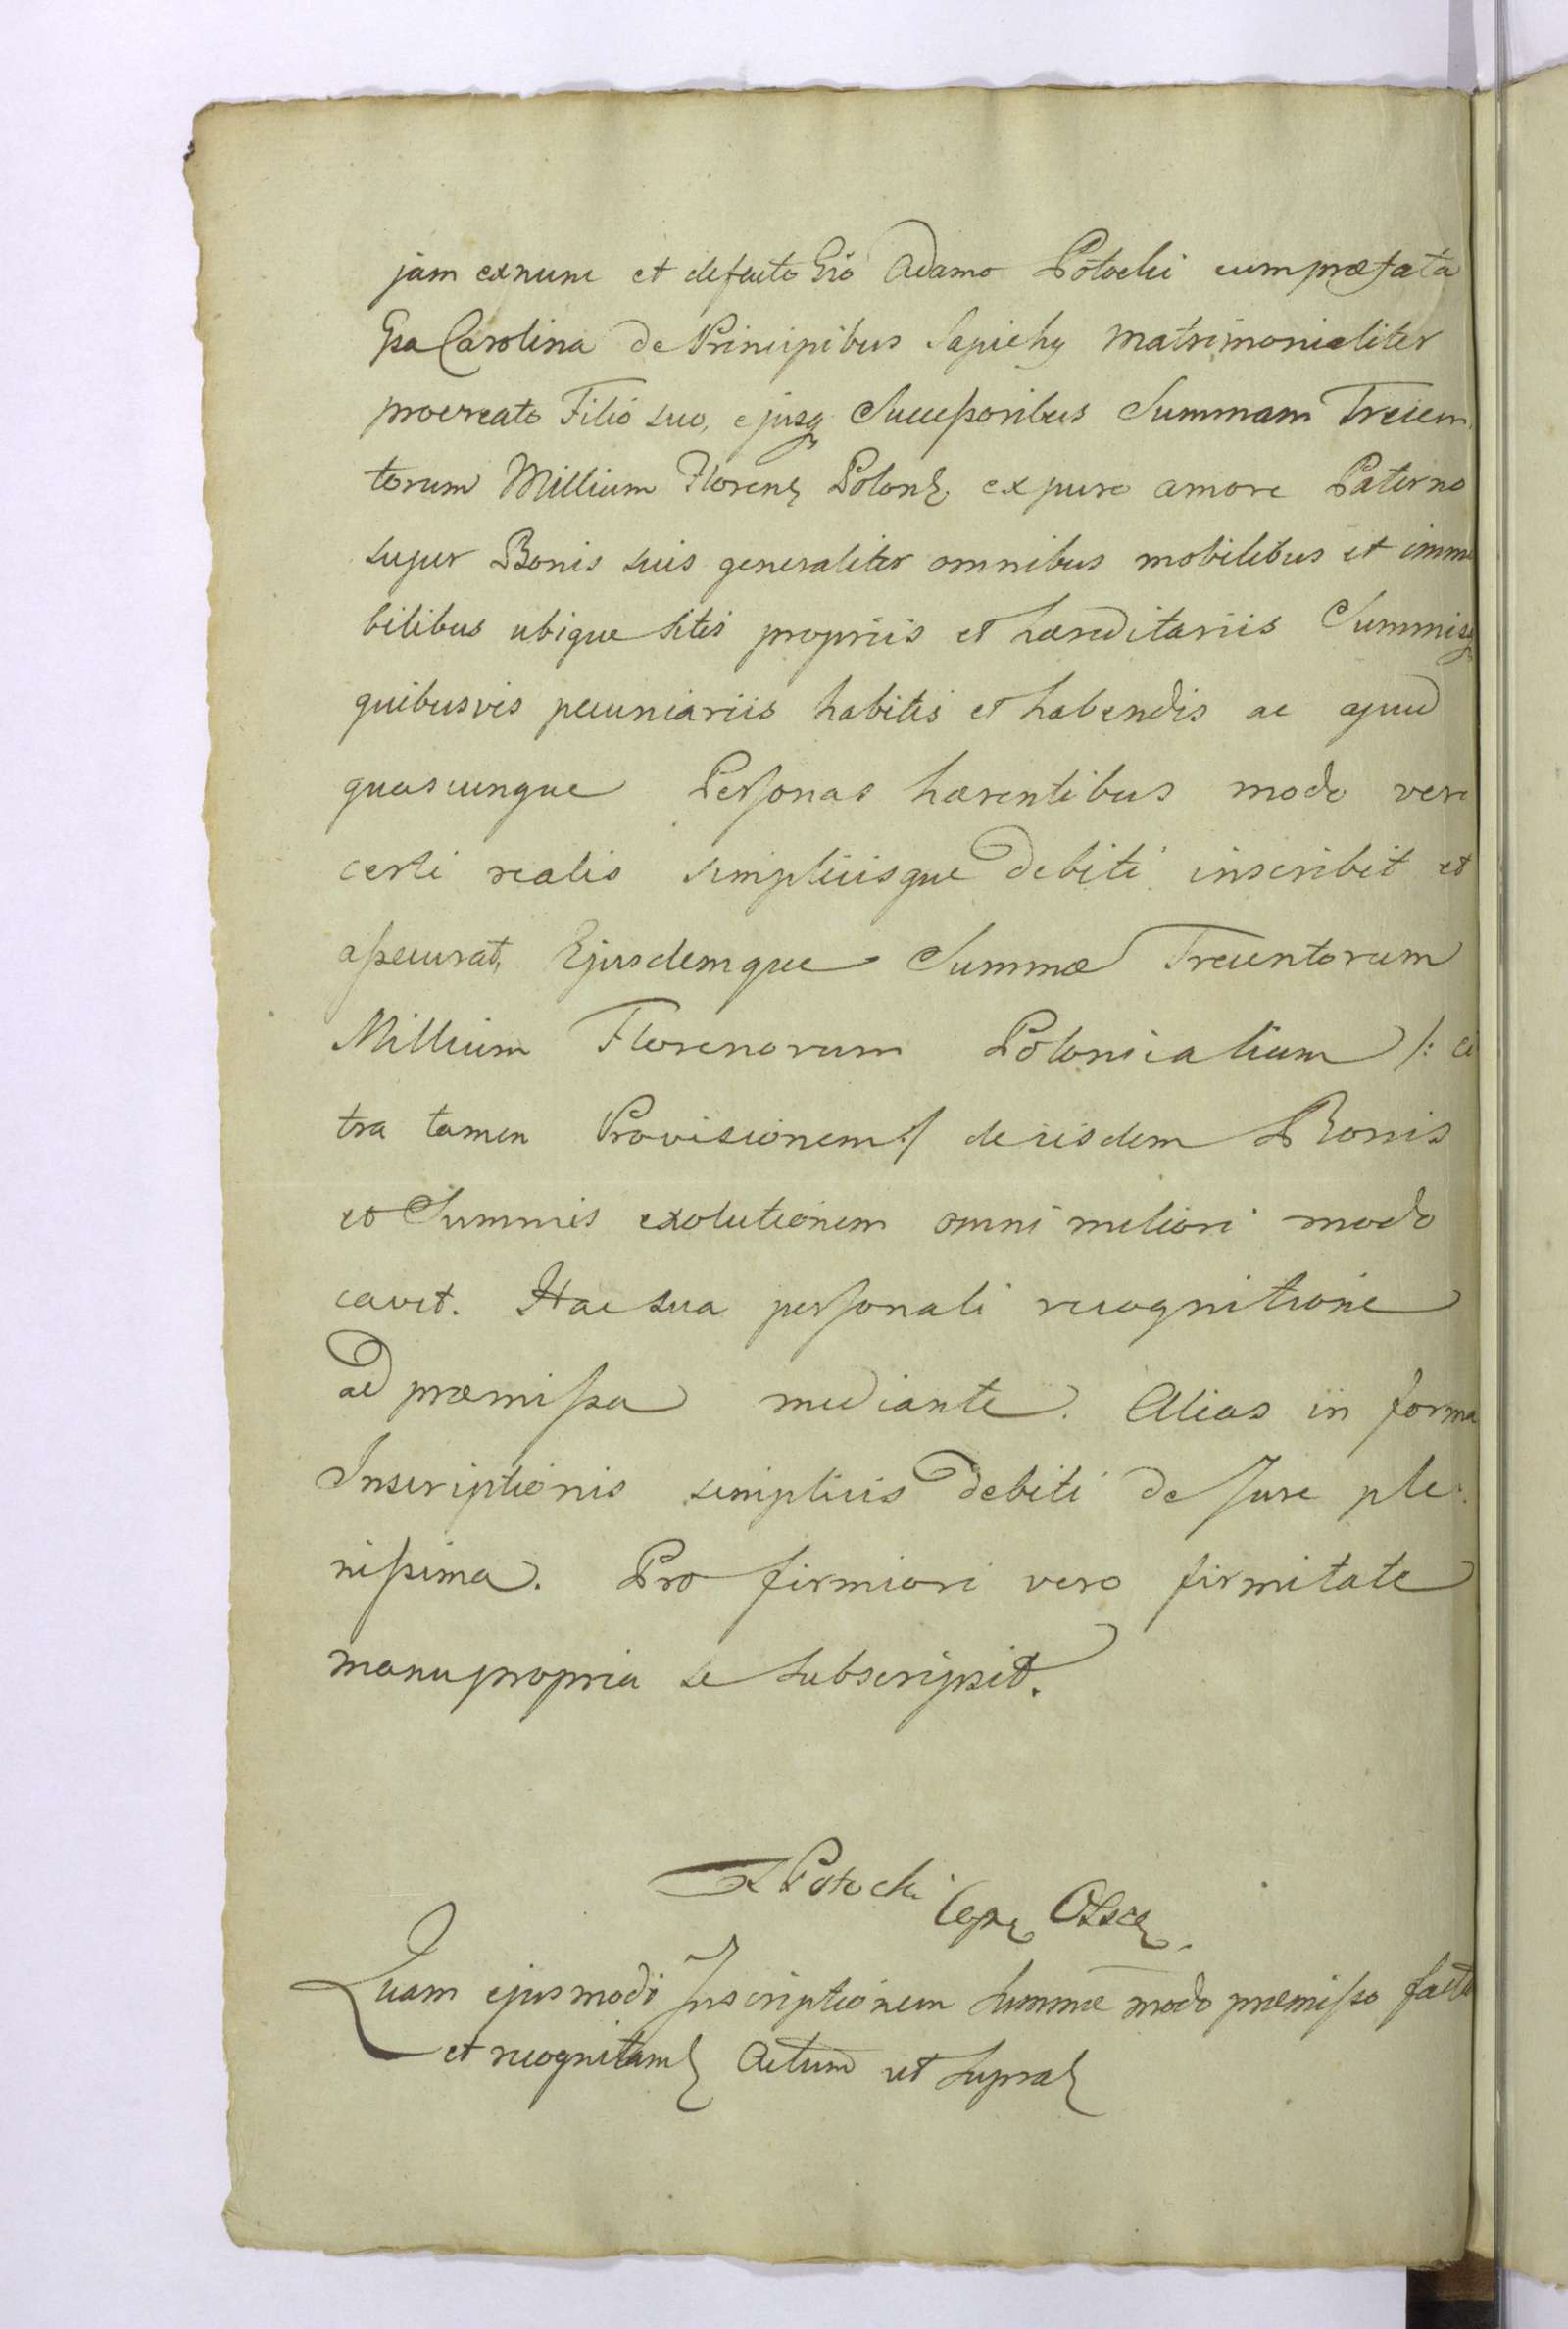 jam exnunc et defacto Gso Adamo Potocki cum præfata
Gsa Carolina de Principibus Sapiehy matrimonialiter
procreato Filio suo, ejusq Successoribus Summam Trecen
torum Millium Floren Polon ex puro amore Paterno
super Bonis suis generaliter omnibus mobilibus et immo
bilibus ubique sitis propriis et hæreditariis Summisq
quibusvis pecuniariis habitis et habendis ac apud
quascunque Personas hærentibus modo vero
certi realis simplicisque debiti inscribit et
assecurat, Ejusdemque Summæ Trecentorum
Millium Florenorum Polonicalium /: ci
tra tamen Provisionem :/ de iisdem Bonis
et Summis exolutionem omni meliori modo
cavet. Hac sua personali recognitione
ad præmissa mediante. Alias in forma
Inscriptionis simplicis debiti de Jure ple
nissima. Pro firmiori vero firmitate
manu propria se subscripsit.
Potocki
Quam ejusmodi Inscriptionem Summæ modo præmisso facta
et recognitam Actum ut supra